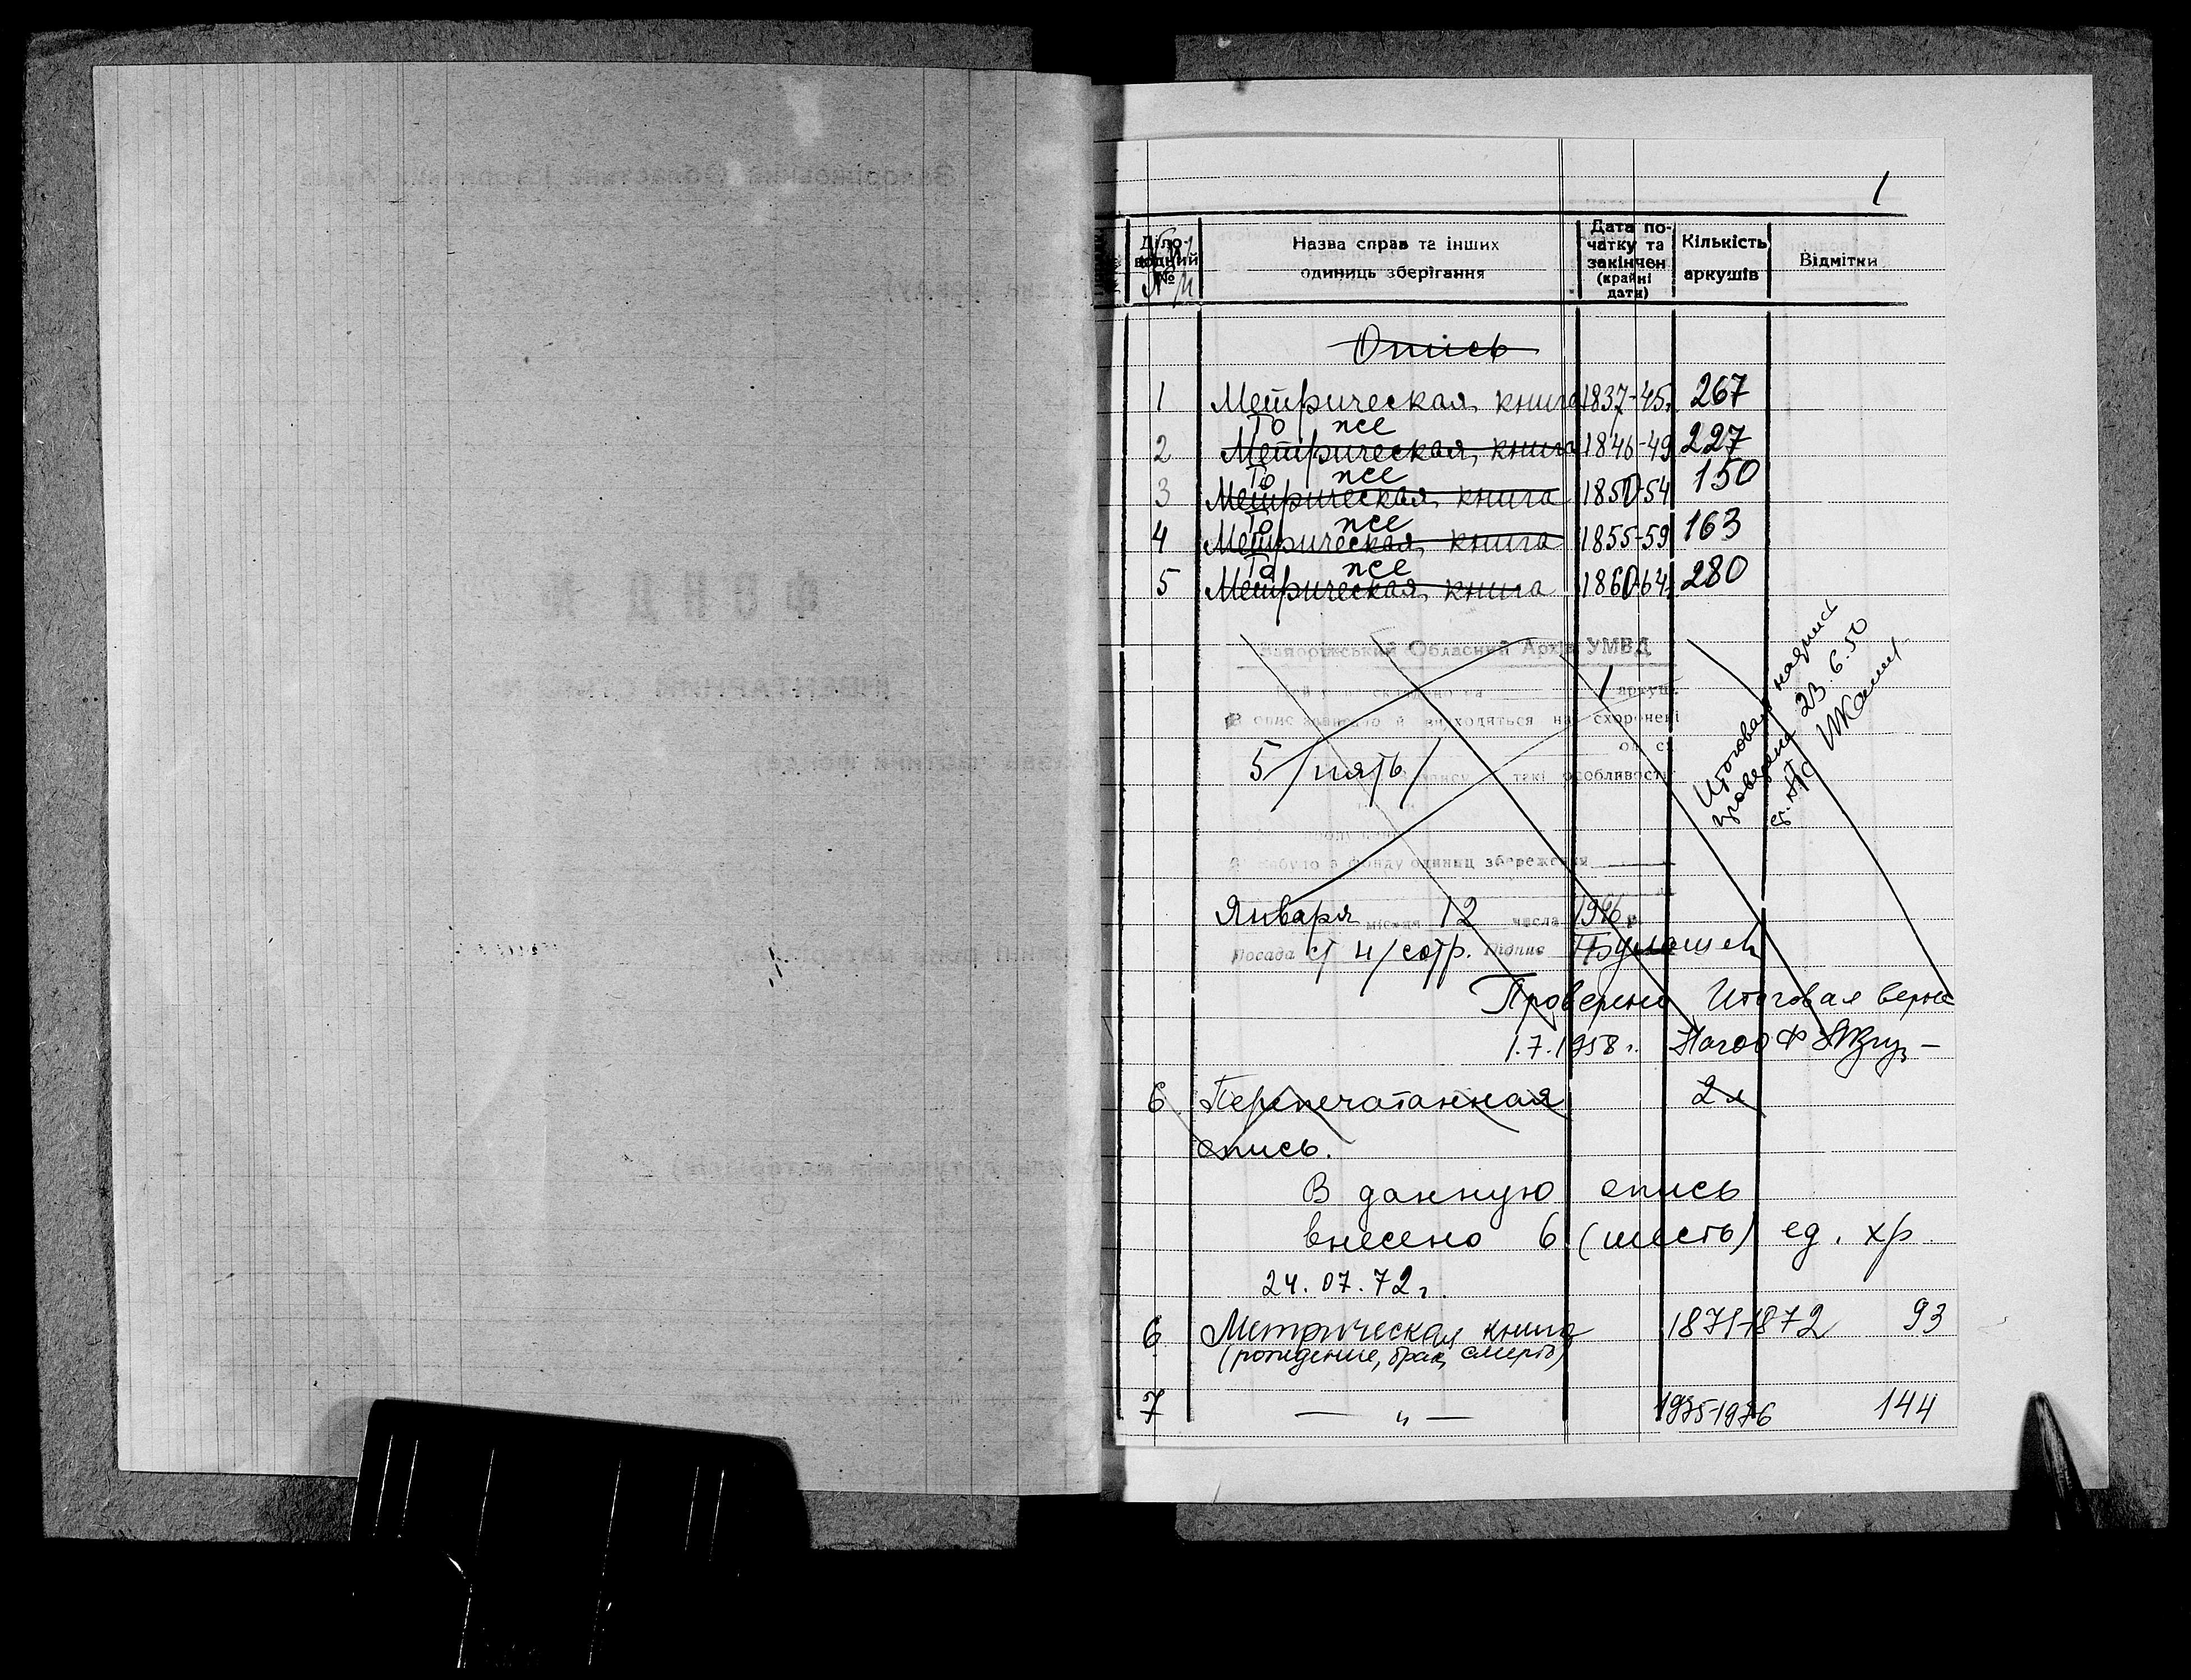 1
Діло-
водний
№
Назва справ та інших
одиниць зберігання
Дата по-
чатку та
закінчен
(крайні
дати)
Кількість
аркушів
Відмітки
Опись
1 Метрическая книга 1837-45 267
То же
2 Метрическая книга 1846-49 227
То же
3 Метрическая книга 1850-54 150
То же
4 Метрическая книга 1855-59 163
То же
5 Метрическая книга 1860-64 280
Запорізський Обласний Архів УМВД
1 аркуш
В опис знаходяться на схоронені
5 /пять/
опису такі особливості
фонду одиниц збереження
Января місяця 12 числа 1946 р.
Посада ст н/сотр. Підпис
Итоговая надпись
проверена 23.6.50
ст.
Проверено Итоговая верна
1.7.1958 г.
6 Перепечатанная 2 л
опись.
В данную опись
внесено 6 (шесть) ед. хр.
24.07.72 г.
6 Метрическая книга 1871-1872 93
(рождение, брак, смерть)
7 — " — 1975-1976 144